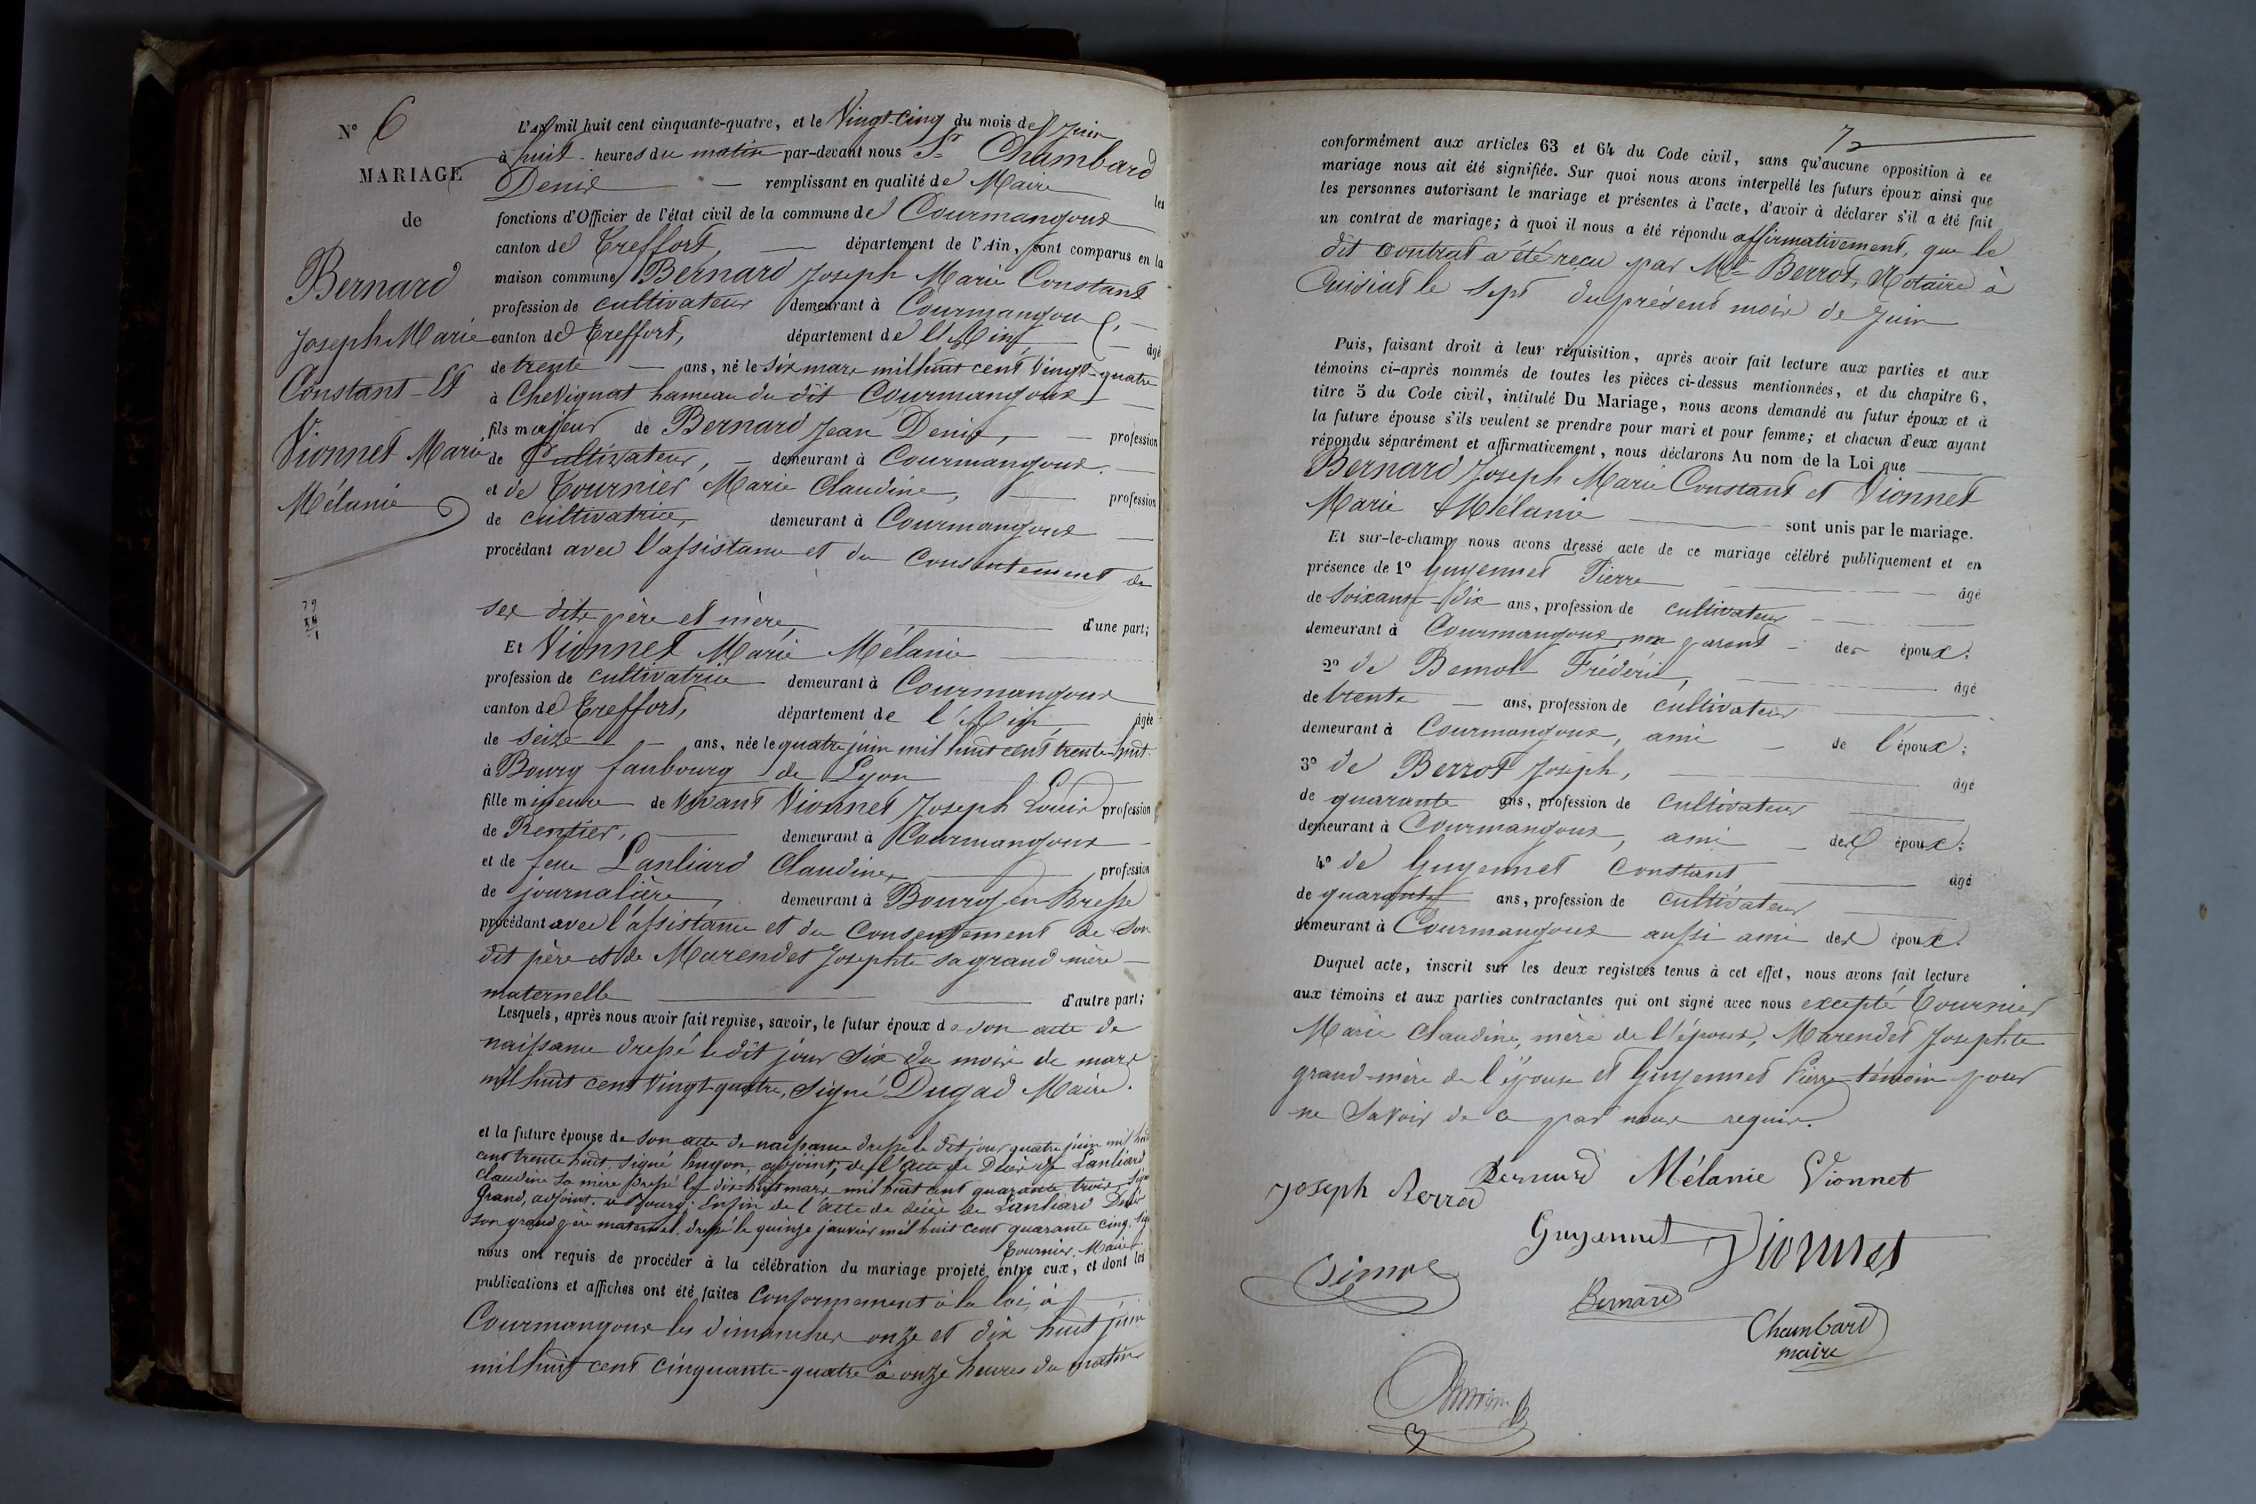 N° 6
MARIAGE
de
Bernard
Joseph Marie
Constant Et
Vionnet Marie
Mélanie
L'AN mil huit cent cinquante-quatre, et le Vingt-Cinq du mois de Juin
à huit heures du matin par-devant nous Sr Chambard
Denis remplissant en qualité de Maire les
fonctions d'Officier de l'état civil de la commune de Courmangoux
canton de Treffort, département de l'Ain, sont comparus en la
maison commune Bernard Joseph Marie Constant
profession de cultivateur demeurant à Courmangoux,
canton de Treffort, département de l'Ain, âgé
de trente ans, né le six mars mil huit cent vingt-quatre
à Chevignat hameau du dit Courmangoux
fils majeur de Bernard Jean Denis, profession
de Cultivateur, demeurant à Courmangoux.
et de Tournier Marie Claudine, profession
de cultivatrice, demeurant à Courmangoux
procédant avec l'assistance et du Consentement de
ses dits père et mère, d'une part;
Et Vionnet Marie Mélanie
profession de cultivatrice demeurant à Courmangoux
canton de Treffort, département de l'Ain, âgée
de seize ans, née le quatre juin mil huit cent trente-huit
à Bourg faubourg de Lyon
fille mineure de vivant Vionnet Joseph Louis profession
de Rentier, demeurant à Courmangoux
et de feue Lanliard Claudine, profession
de journalière, demeurant à Bourg en Bresse
procédant avec l'assistance et du Consentement de son
dit père et de Marendet Josephte sa grand mère
maternelle d'autre part;
Lesquels, après nous avoir fait remise, savoir, le futur époux de son acte de
naissance dressé le dit jour six du mois de mars
mil huit cent vingt-quatre, signé Dugad Maire.
et la future épouse de son acte de naissance dressé le dit jour quatre juin mil huit
cent trente huit, signé adjoint, de l'acte de Décès de Lanliard
Claudine sa mère dressé le dix-huit mars mil huit cent quarante trois, signé
Grand, adjoint à Bourg. Enfin de l'acte de décès de Lanliard Denis
son grand père maternel, dressé le quinze janvier mil huit cent quarante cinq, signé
Tournier, Maire.
nous ont requis de procéder à la célébration du mariage projeté entre eux, et dont les
publications et affiches ont été faites Conformément à la loi, à
Courmangoux les dimanches onze et dix huit juin
mil huit cent cinquante-quatre à onze heures du matin
7
conformément aux articles 63 et 64 du Code civil, sans qu'aucune opposition à ce
mariage nous ait été signifiée. Sur quoi nous avons interpellé les futurs époux ainsi que
les personnes autorisant le mariage et présentes à l'acte, d'avoir à déclarer s'il a été fait
un contrat de mariage; à quoi il nous a été répondu affirmativement, que le
dit contrat a été reçu par Me Berrot, Notaire à
Cuisiat le sept du présent mois de juin
Puis, faisant droit à leur réquisition, après avoir fait lecture aux parties et aux
témoins ci-après nommés de toutes les pièces ci-dessus mentionnées, et du chapitre 6,
titre 5 du Code civil, intitulé Du Mariage, nous avons demandé au futur époux et à
la future épouse s'ils veulent se prendre pour mari et pour femme; et chacun d'eux ayant
répondu séparément et affirmativement, nous déclarons Au nom de la Loi que
Bernard Joseph Marie Constant et Vionnet
Marie Mélanie sont unis par le mariage.
Et sur-le-champ nous avons dressé acte de ce mariage célébré publiquement et en
présence de 1° Guyennet Pierre âgé
de soixante dix ans, profession de cultivateur
demeurant à Courmangoux, non parent des époux.
2° de Bemol Fréderic, âgé
de trente ans, profession de cultivateur
demeurant à Courmangoux, ami de l'époux;
3° de Berrot Joseph, âgé
de quarante ans, profession de Cultivateur
demeurant à Courmangoux, ami des époux;
4° de Guyennet Constant âgé
de quarante ans, profession de Cultivateur
demeurant à Courmangoux aussi ami des époux.
Duquel acte, inscrit sur les deux registres tenus à cet effet, nous avons fait lecture
aux témoins et aux parties contractantes qui ont signé avec nous excepté Tournier
Marie Claudine, mère de l'époux, Marendet Josephte
grand-mère de l'épouse et Guyennet Pierre témoin pour
ne savoir de ce par nous requis.
Bernard Mélanie Vionnet
Joseph
Guyennet Vionnet
Bernard
Chambard
maire